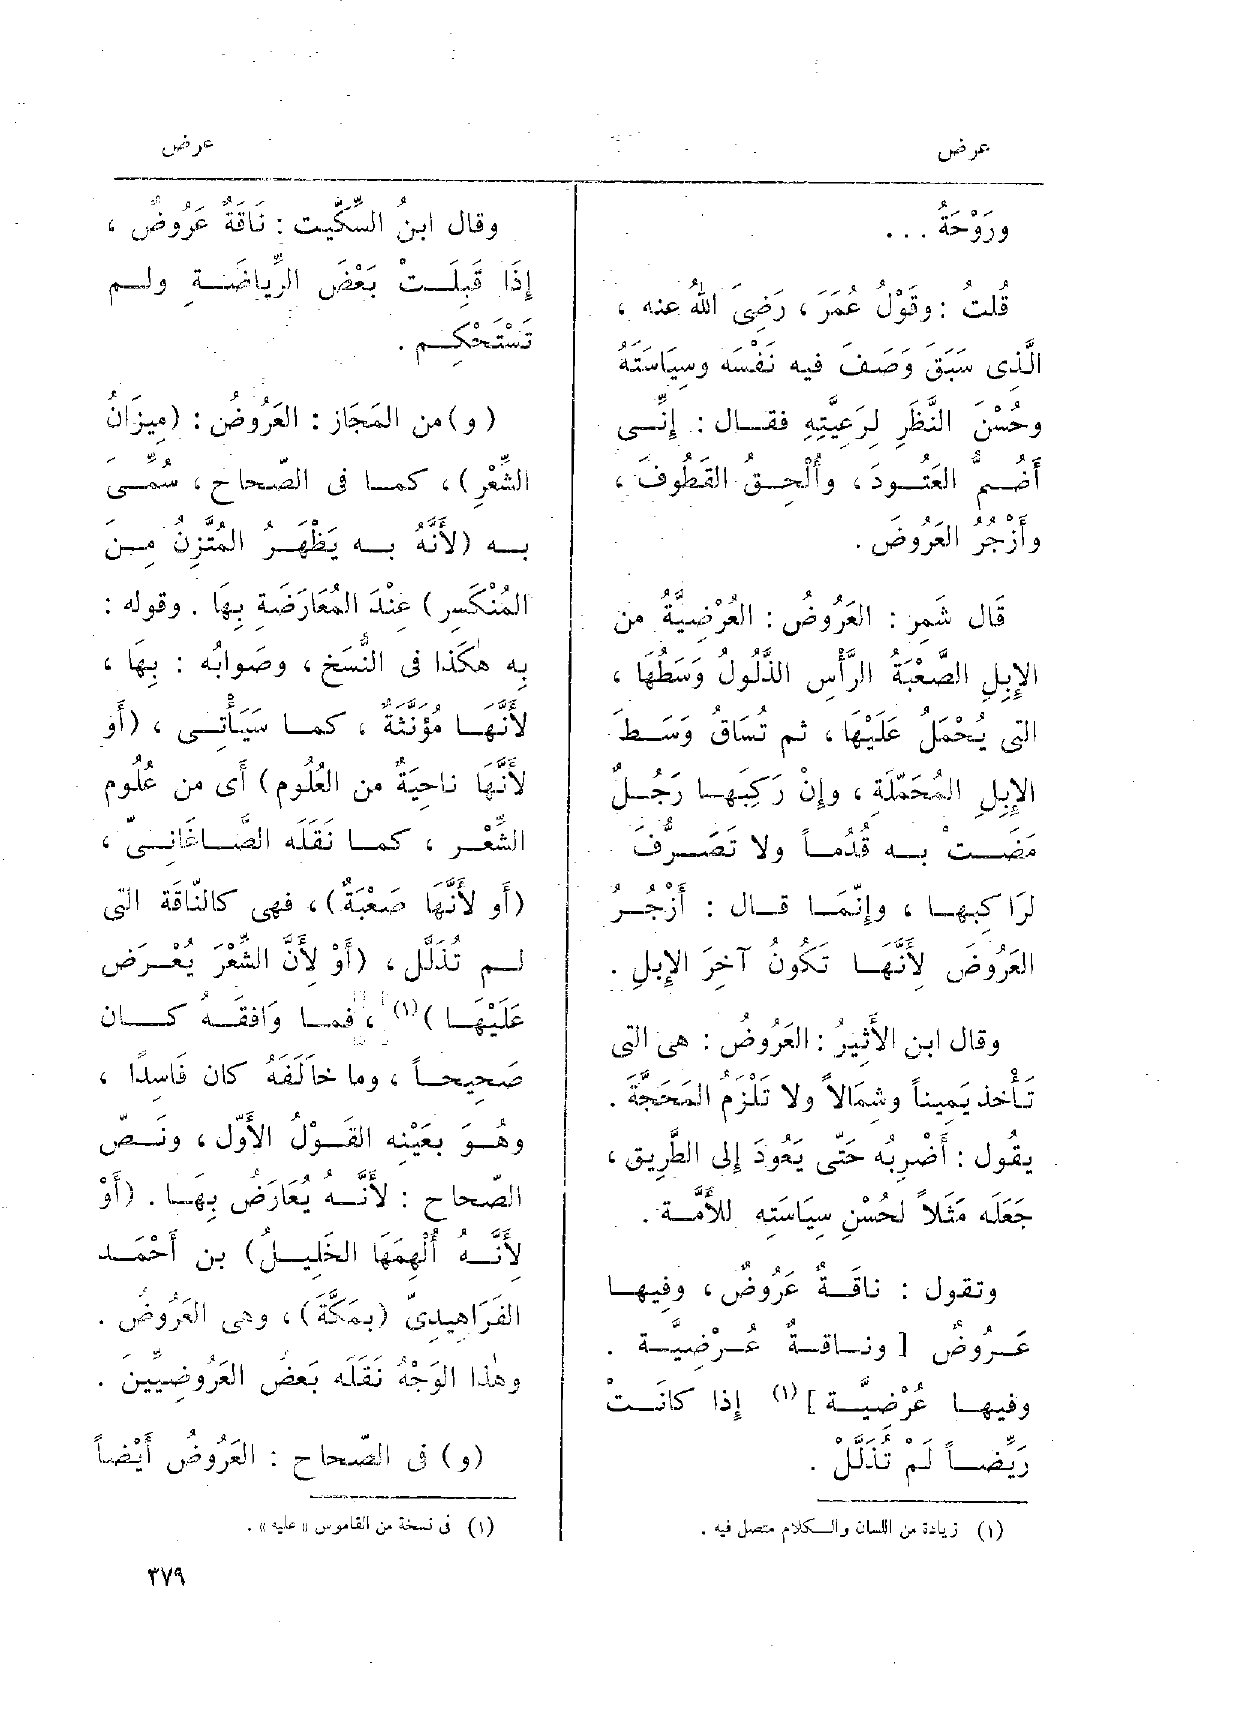 عرض
عرض
ورَوْحَةٌ ...
قلتُ : وقَوْلُ عُمَرَ ، رَضِىَ اللهُ عنه ،
الَّذِى سَبَقَ وَصَفَ فيه نَفْسَه وسِيَاسَتَهُ
وحُسْنَ النَّظَرِ لِرَعِيَّتِهِ فقـال : إِنِّـى
أَضُـمُّ العَتُـودَ ، وأُلْحِـقُ القَطُوفَ ،
وأَزْجُرُ العَرُوضَ .
قَال شَمِر : العَرُوضُ : العُرْضِيَّةُ من
الإِبِلِ الصَّعْبَةُ الرَّأْسِ الذَّلُولُ وَسَطُهَا ،
التى يُحْمَلُ عَلَيْهَا ، ثم تُسَاقُ وَسَـطَ
الإِبِلِ المُحَمَّلَة ، وإِنْ رَكِبَهـا رَجُـلٌ
مَضَـتْ بـه قُدُمـاً ولا تَصَـرُّفَ
لرَاكِبهـا ، وإِنَّمَـا قـال : أَزْجُـرُ
العَرُوضَ لأَنَّهَـا تَكُونُ آخِرَ الإِبلِ .
وقال ابن الأَثيرُ : العَرُوضُ : هى التى
تَأْخذ يَمِيناً وشمَالاً ولا تَلْزَمُ المَحَجَّةَ .
يقُول : أَضْرِبُه حَتَّى يَعُودَ إِلى الطَّرِيق ،
جَعَلَه مَثَلاً لحُسْنِ سِيَاسَتِه للأُمَّـة .
وتقول : ناقَـةٌ عَرُوضٌ ، وفِيهـا
عَـرُوضٌ [ ونـاقـةٌ عُـرْضِيَّـة .
وفيهـا عُرْضِيَّـة ] (١) إِذا كانَـتْ
رَيِّضـاً لَمْ تُذَلَّلْ .
(١) زيادة من اللسان والـكلام متصل فيه .
وقال ابنُ السِّكِّيت : نَاقَةٌ عَرُوضٌ ،
إِذَا قَبِلَـتْ بَعْضَ الرِّيَاضَـةِ ولـم
تَسْتَحْكِـم .
( و ) من المَجَاز : العَرُوضُ : (مِيزَانُ
الشِّعْرِ ) ، كمـا فى الصّحاح ، سُمِّـىَ
بـه (لأَنَّهُ بـه يَظْهَـرُ المُتَّزِنُ مِـنَ
المُنْكَسِرِ ) عِنْدَ المُعَارَضَةِ بِهَا . وقوله :
بِه هكَذا فى النُّسَخ ، وصَوابُه : بِهَا ،
لأَنَّهَـا مُؤَنَّثَةٌ ، كمـا سَيَأْتـى ، (أَو
لأَنَّهَا ناحِيَةٌ من العُلُوم ) أَى من عُلُوم
الشِّعْـر ، كمـا نَقَلَه الصَّـاغَانِـىّ ،
(أَو لأَنَّهَا صَعْبَةٌ) ، فهى كالنّاقَة التى
لـم تُذَلَّل ، (أَوْ لأَنَّ الشِّعْرَ يُعْـرَض
عَلَيْهَـا ) (١) ، فما وَافَقَـهُ كـان
صَحِيحـاً ، وما خالَفَهُ كان فَاسِدًا ،
وهُـوَ بعَيْنِه القَـوْلُ الأَوّل ، ونَـصّ
الصّحاح : لأَنَّـهُ يُعَارَضُ بِهَـا . (أَوْ
لأَنَّـهُ أُلْهِمَهَا الخَلِيـلُ) بن أَحْمَـد
الفَرَاهِيدِىّ (بمَكَّةَ) ، وهى العَرُوضُ .
وهٰذا الوَجْهُ نَقَلَه بَعَضُ العَرُوضِيِّينَ .
(و) فى الصّحاح : العَرُوضُ أَيْضاً
(١) فى نسخة من القاموس «عليه» .
٣٧٩